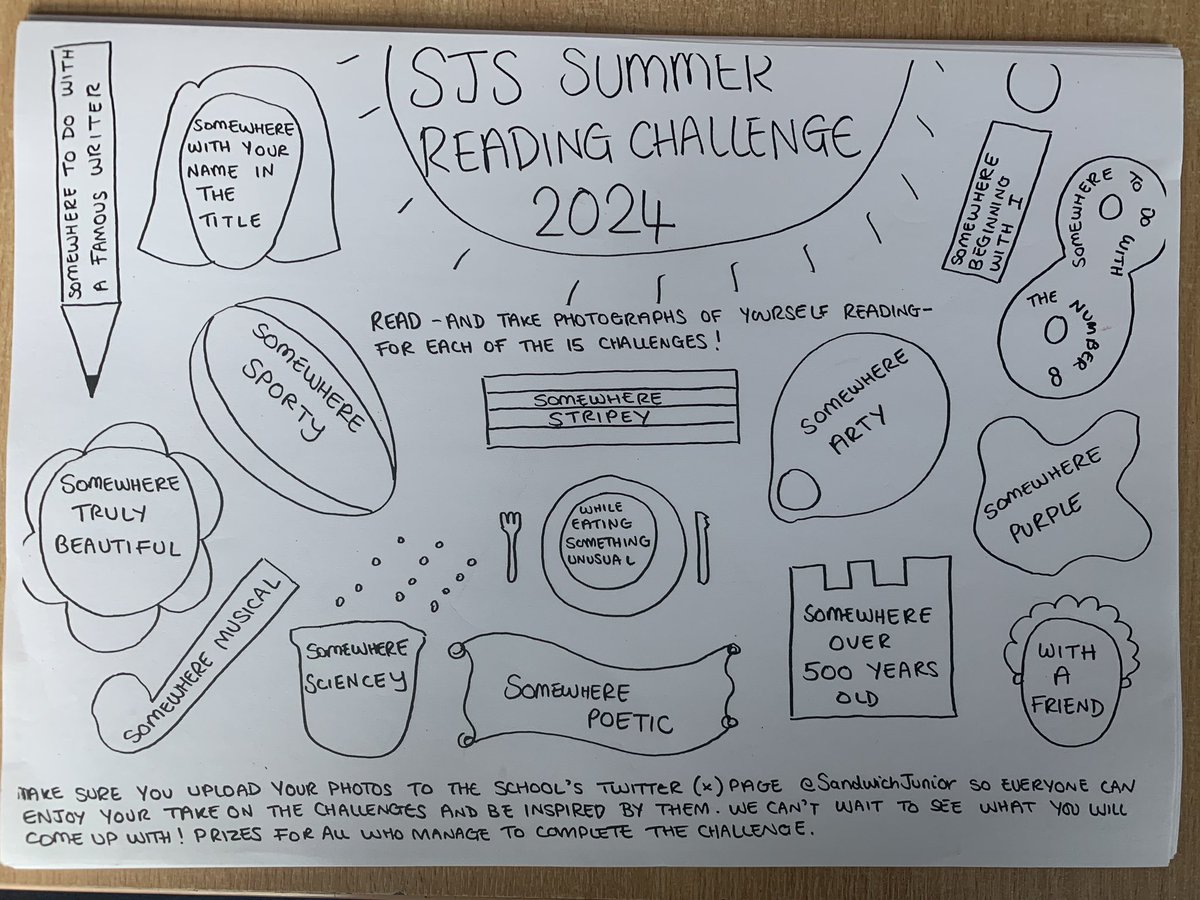 SJS SUMMER
READING CHALLENGE
2024
SOMEWHERE TO DO WITH
A FAMOUS WRITER
SOMEWHERE
WITH YOUR
NAME IN
THE
TITLE
SOMEWHERE
BEGINNING
WITH I
SOMEWHERE TO DO WITH
THE NUMBER 8
READ - AND TAKE PHOTOGRAPHS OF YOURSELF READING -
FOR EACH OF THE 15 CHALLENGES!
SOMEWHERE
SPORTY
SOMEWHERE
STRIPEY
SOMEWHERE
ARTY
SOMEWHERE
TRULY
BEAUTIFUL
WHILE
EATING
SOMETHING
UNUSUAL
SOMEWHERE
PURPLE
SOMEWHERE MUSICAL
SOMEWHERE
SCIENCEY
SOMEWHERE
POETIC
SOMEWHERE
OVER
500 YEARS
OLD
WITH
A
FRIEND
MAKE SURE YOU UPLOAD YOUR PHOTOS TO THE SCHOOL'S TWITTER (X) PAGE @SandwichJunior SO EVERYONE CAN
ENJOY YOUR TAKE ON THE CHALLENGES AND BE INSPIRED BY THEM. WE CAN'T WAIT TO SEE WHAT YOU WILL
COME UP WITH! PRIZES FOR ALL WHO MANAGE TO COMPLETE THE CHALLENGE.